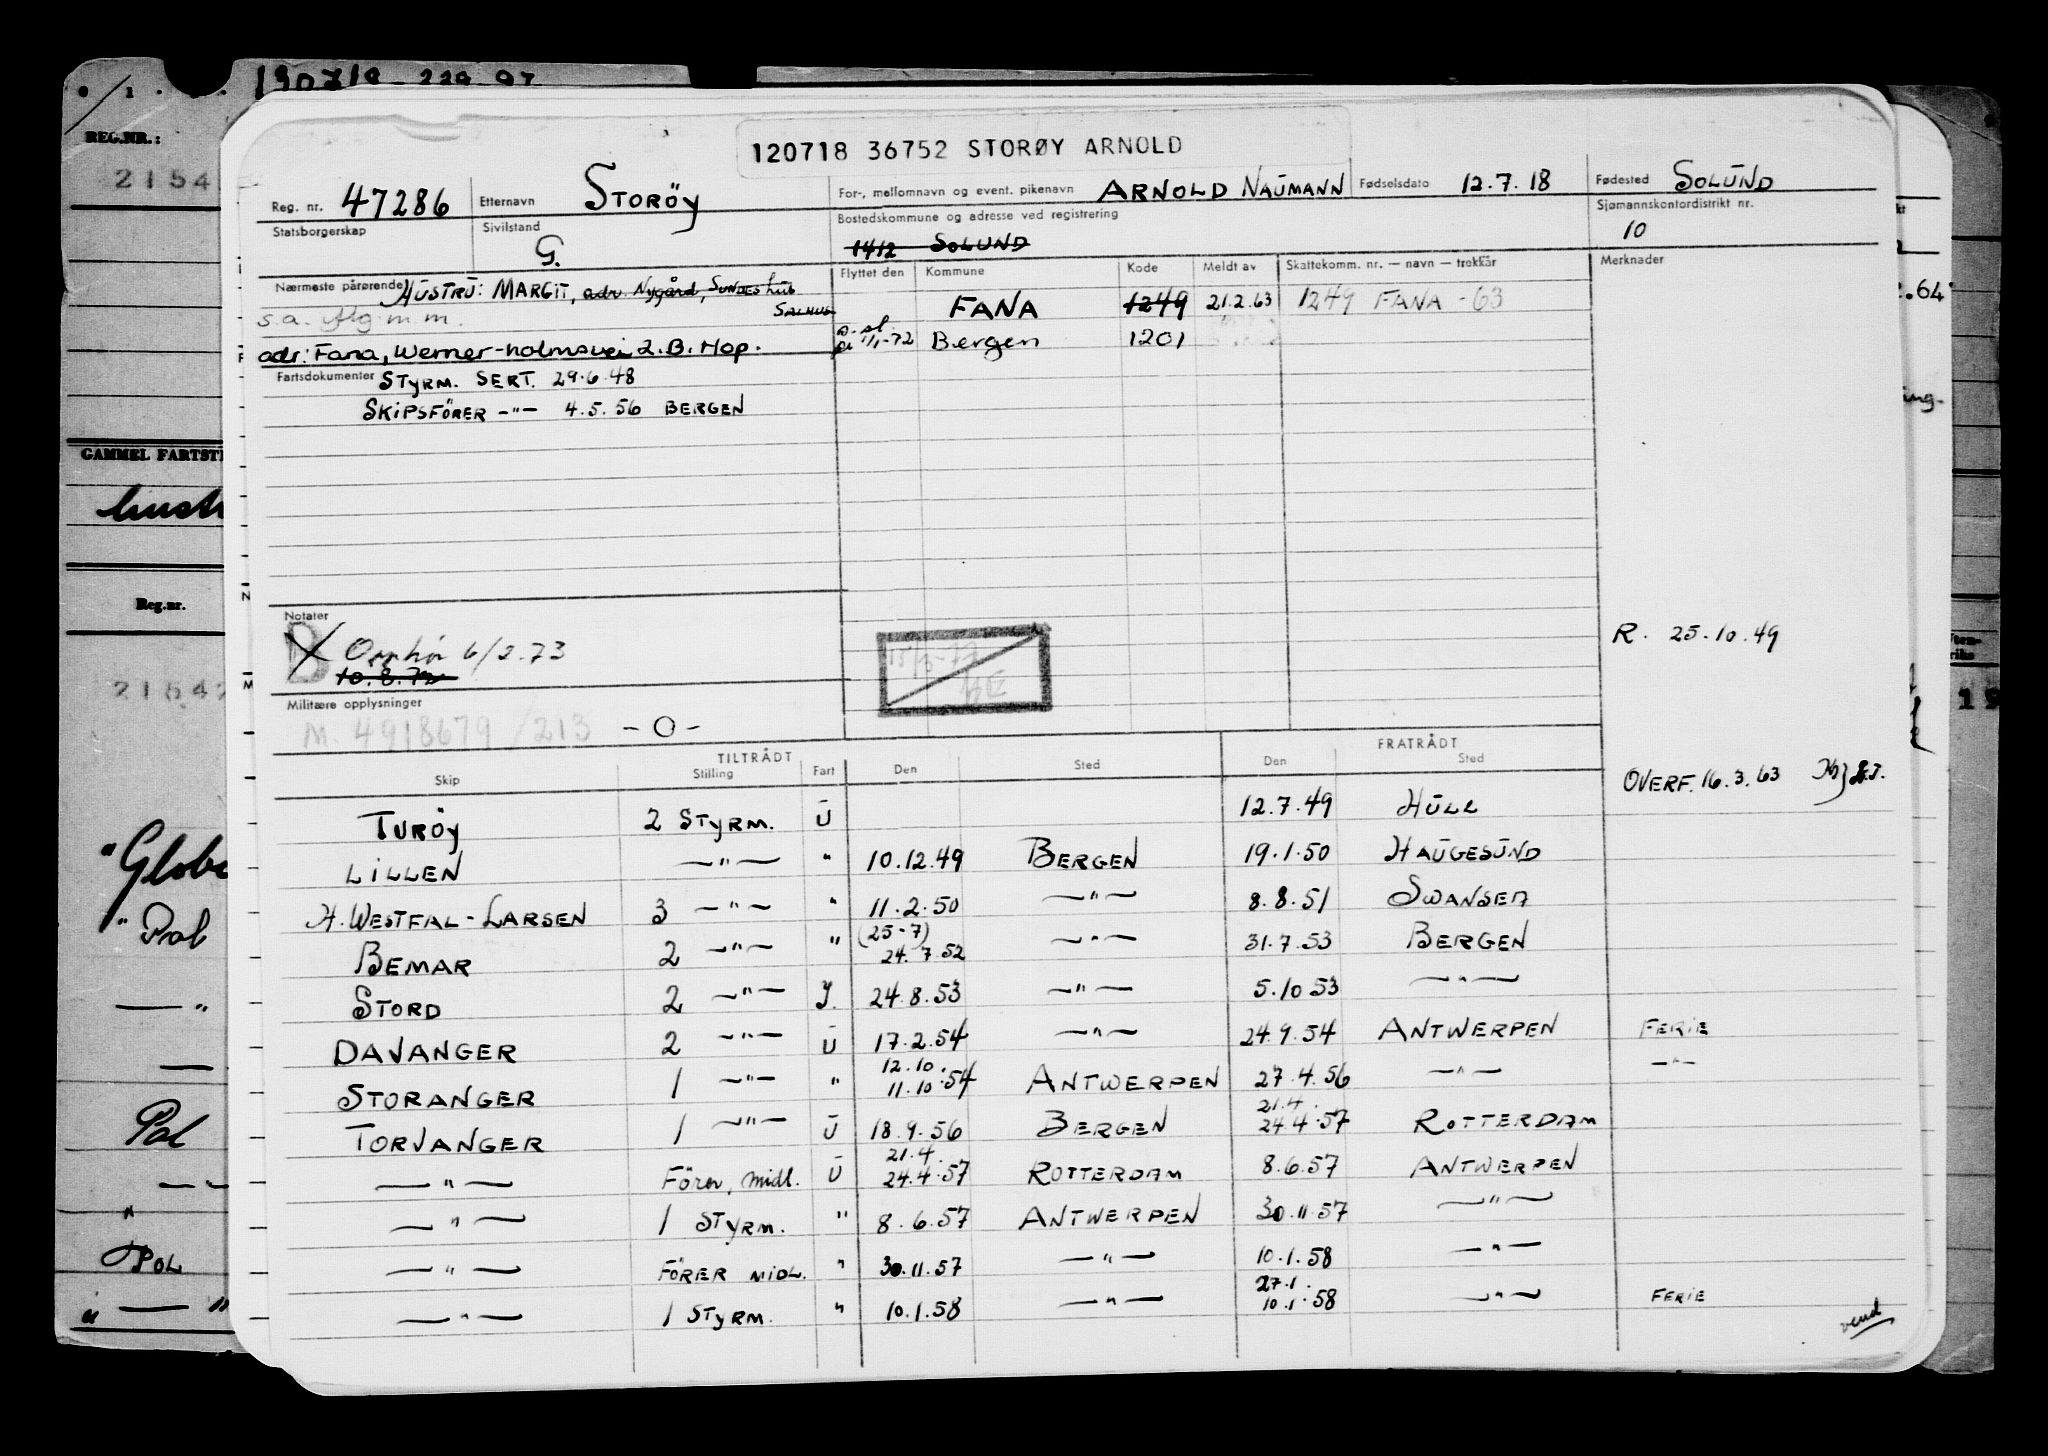 130719
REG.NR.:
2154
GAMMEL FARTSTI
Reg.nr.
21542
"Globe
" Pol
— "
Pol
Pol
120718 36752 STORØY ARNOLD
Reg. nr. 47286 Etternavn STORÖY For-, mellomnavn og event. pikenavn ARNOLD NAUMANN Fødselsdato 12.7.18 Fødested SOLUND
Statsborgerskap Sivilstand G. Bostedskommune og adresse ved registrering 1412 SOLUND Sjømannskontordistrikt nr. 10
Nærmeste pårørende HUSTRU: MARGIT, adr. Nygård, Flyttet den Kommune Kode Meldt av Skattekomm. nr. — navn — trekkår Merknader
s.a. SALHUS FANA 1249 21.2.63 1249 FANA - 63
adr: Fana, Werner-holmsvei 2.B. Hop. 1/1-72 Bergen 1201
Fartsdokumenter STYRM. SERT. 29.6.48
SKIPSFÖRER -"- 4.5.56 BERGEN
Notater
B Opphør 6/2.73
10.8.72
R. 25.10.49
Militære opplysninger
M. 4918679/213 -O-
TILTRÅDT FRATRÅDT
Skip Stilling Fart Den Sted Den Sted
OVERF. 16.3.63
TURÖY 2 STYRM. U 12.7.49 HULL
LILLEN —"— " 10.12.49 BERGEN 19.1.50 HAUGESUND
H. WESTFAL-LARSEN 3 —"— " 11.2.50 —"— 8.8.51 SWANSEA
BEMAR 2 —"— " (25-7) 24.7.52 —"— 31.7.53 BERGEN
STORD 2 —"— J. 24.8.53 —"— 5.10 53 —"—
DAVANGER 2 —"— U 17.2.54 —"— 24.9.54 ANTWERPEN FERIE
STORANGER 1 —"— " 12.10. 11.10.54 ANTWERPEN 27.4.56 —"— —"—
TORVANGER 1 —"— U 18.9.56 BERGEN 21.4. 24.4.57 ROTTERDAM
—"— Förer, midl. U 21.4. 24.4.57 ROTTERDAM 8.6.57 ANTWERPEN
—"— 1 STYRM. " 8.6.57 ANTWERPEN 30.11.57 —"—
—"— FÖRER MIDL. " 30.11.57 —"— 10.1.58 —"—
—"— 1 STYRM. " 10.1.58 —"— 27.1. 10.1.58 —"— FERIE
vend